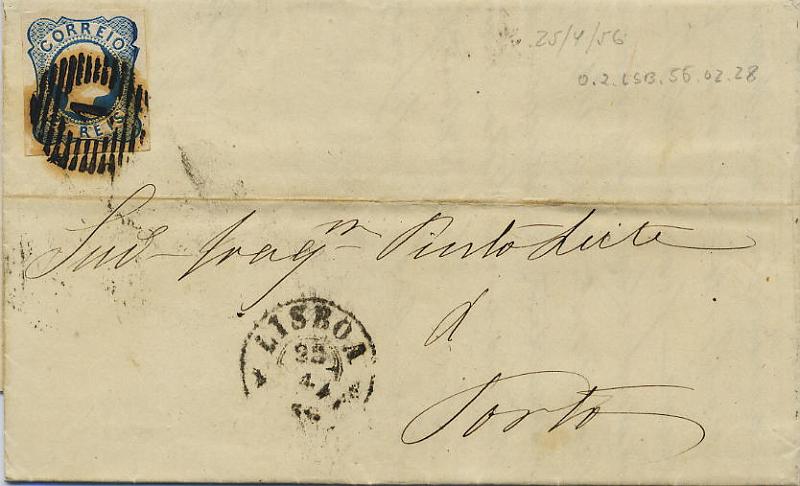 CORREIO
1
REIS
25/4/56
0.2.LSB.56.02.28
Pinto Leite
d
Porto
LISBOA
25
4